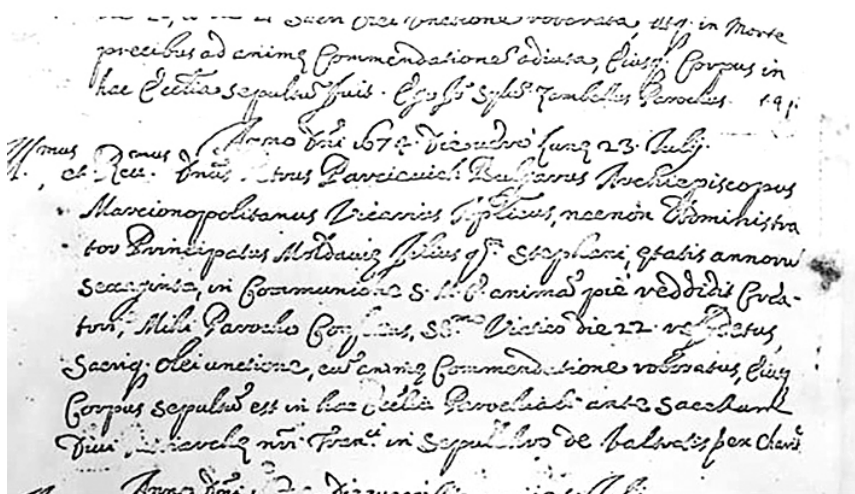 Sacri Olei Unctione roborata, in Morte
precibus ad animę Commendatione adiuta, Eiusq. Corpus in
hac Ecclia sepultũ fuit. Ego Parochus.
Anno Dñi 1674. Die verò lunę 23. Julij.
Illmus et Rmus Dñus Petrus Parcevich Bulgarus Archiepiscopus
Marcionopolitanus Vicarius Aplicus, necnon Administra
tor Principatus Moldavię filius qm Stephani, ętatis annorũ
Sexaginta, in Communione S. M. E. animã piè reddidit Crea-
tori, Mihi Parocho Confessus, Viatico die 22. refectus,
Sacriq. Olei unctione, animę Commendatione roboratus, Eiusq
Corpus sepultũ est in hac Ecclia Parochiali ante Sacellum
Divi nri in Sepulchro de
Anno Dñi